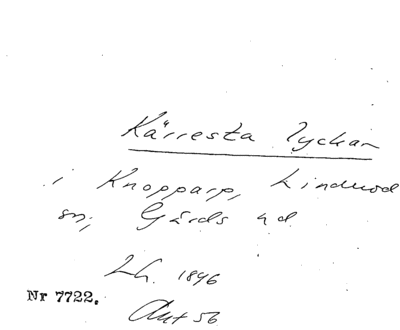 Kärresta lyckan
i Knopparp, Linderöd
sn; Gärds hd
Lh. 1846
Nr 7722.
Akt 56